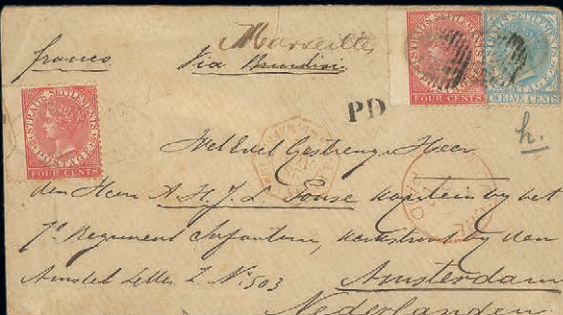 franco Marseille
Via Brindisi
STRAITS SETTLEMENTS
POSTAGE
FOUR CENTS
STRAITS SETTLEMENTS
POSTAGE
TWELVE CENTS
STRAITS SETTLEMENTS
POSTAGE
FOUR CENTS
PD
h.
Gestrenge Heer
den Heer A.H.J.L. kapitein by het
7e Regiment Infanterie, by den
Amstel Letter Z No. 503
Amsterdam
Nederlanden